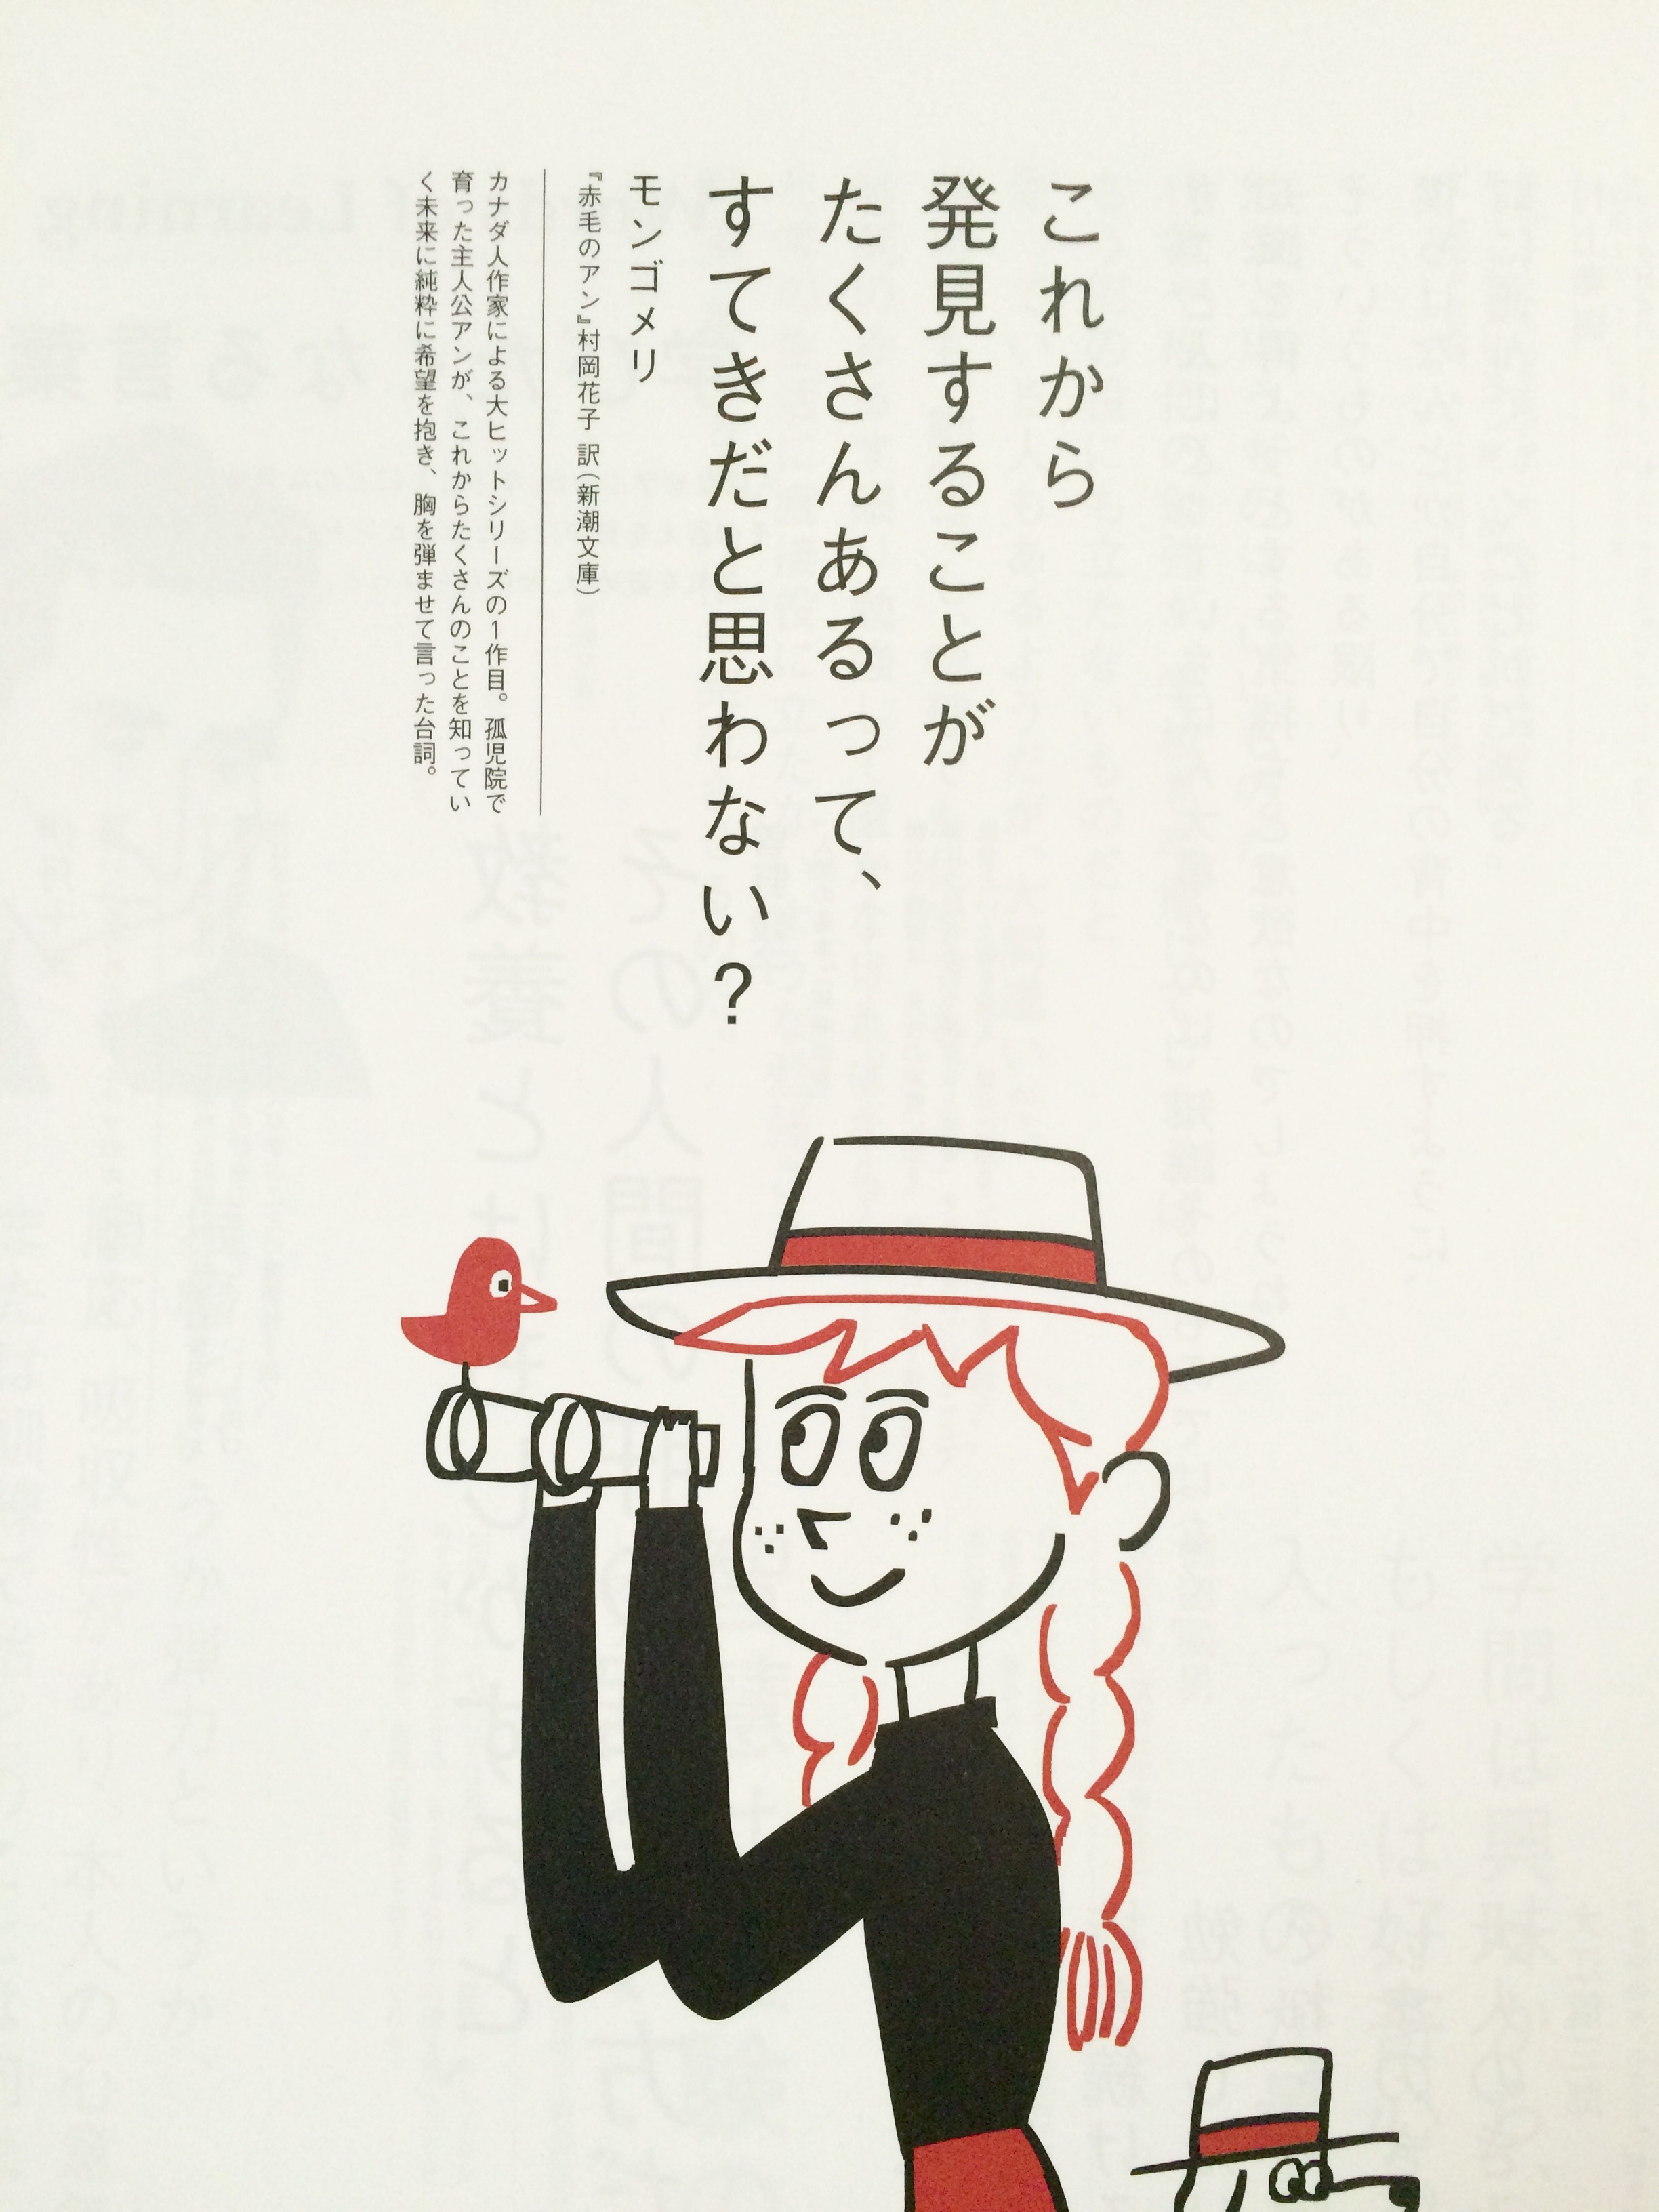 これから
発見することが
たくさんあるって、
すてきだと思わない？
モンゴメリ
『赤毛のアン』村岡花子 訳（新潮文庫）
カナダ人作家による大ヒットシリーズの1作目。孤児院で
育った主人公アンが、これからたくさんのことを知ってい
く未来に純粋に希望を抱き、胸を弾ませて言った台詞。